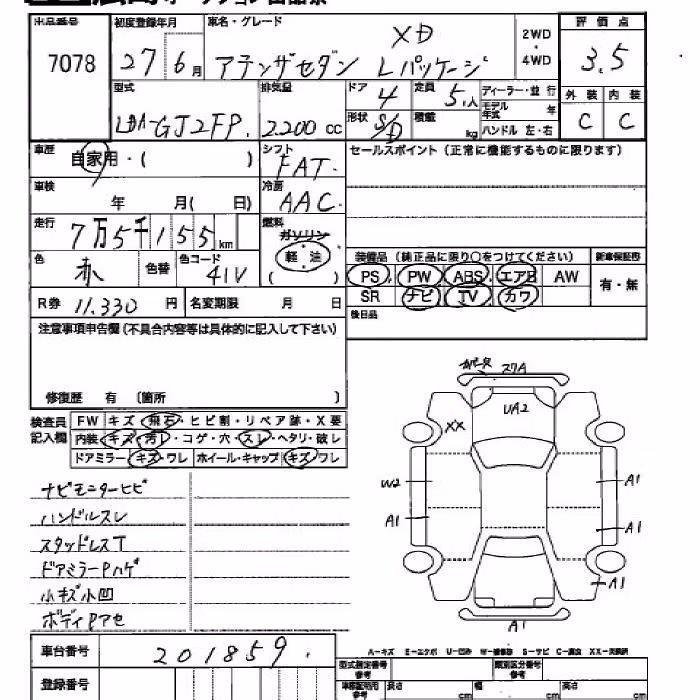 出品番号 初度登録年月 車名・グレード 評価点
7078 27年6月 アテンザセダン XD Lパッケージ 2WD・4WD 3.5
型式 排気量 ドア 4 定員 5人 ディーラー・並行 外装 内装
LDA-GJ2FP. 2.200cc 形状 S/D 積載 kg モデル年式 年 ハンドル 左・右 C C
車歴 自家用・( ) シフト FAT. セールスポイント(正常に機能するものに限ります)
車検 年 月( 日) 冷房 AAC.
走行 7万5千155km 燃料 ガソリン
軽・油
( )
色 赤 色替 色コード 41V 装備品(純正品に限り○をつけてください) 新車保証書
PS PW ABS エアB AW 有・無
R券 11.330円 名変期限 月 日 SR ナビ TV カワ
注意事項申告欄(不具合内容等は具体的に記入して下さい) 後日品
修復歴 有 〔箇所 〕
検査員記入欄 FW キズ・飛石・ヒビ割・リペア跡・X要
内装・キズ・汚レ・コゲ・穴・スレ・ヘタリ・破レ
ドアミラー・キズ・ワレ ホイール・キャップ・キズ・ワレ
ナビモニターヒビ
ハンドルスレ
スタッドレスT
ドアミラーPハゲ
小キズ小凹
ボディPアセ
27A
UA2
XX
W2 A1
A1 A1
A1
A1
A-キズ E-エクボ U-凹み W-補修跡 S-サビ C-腐食 XX-交換済
車台番号 201859.
登録番号
型式指定番号 参考 類別区分番号 参考
長さ cm 幅 cm 高さ cm